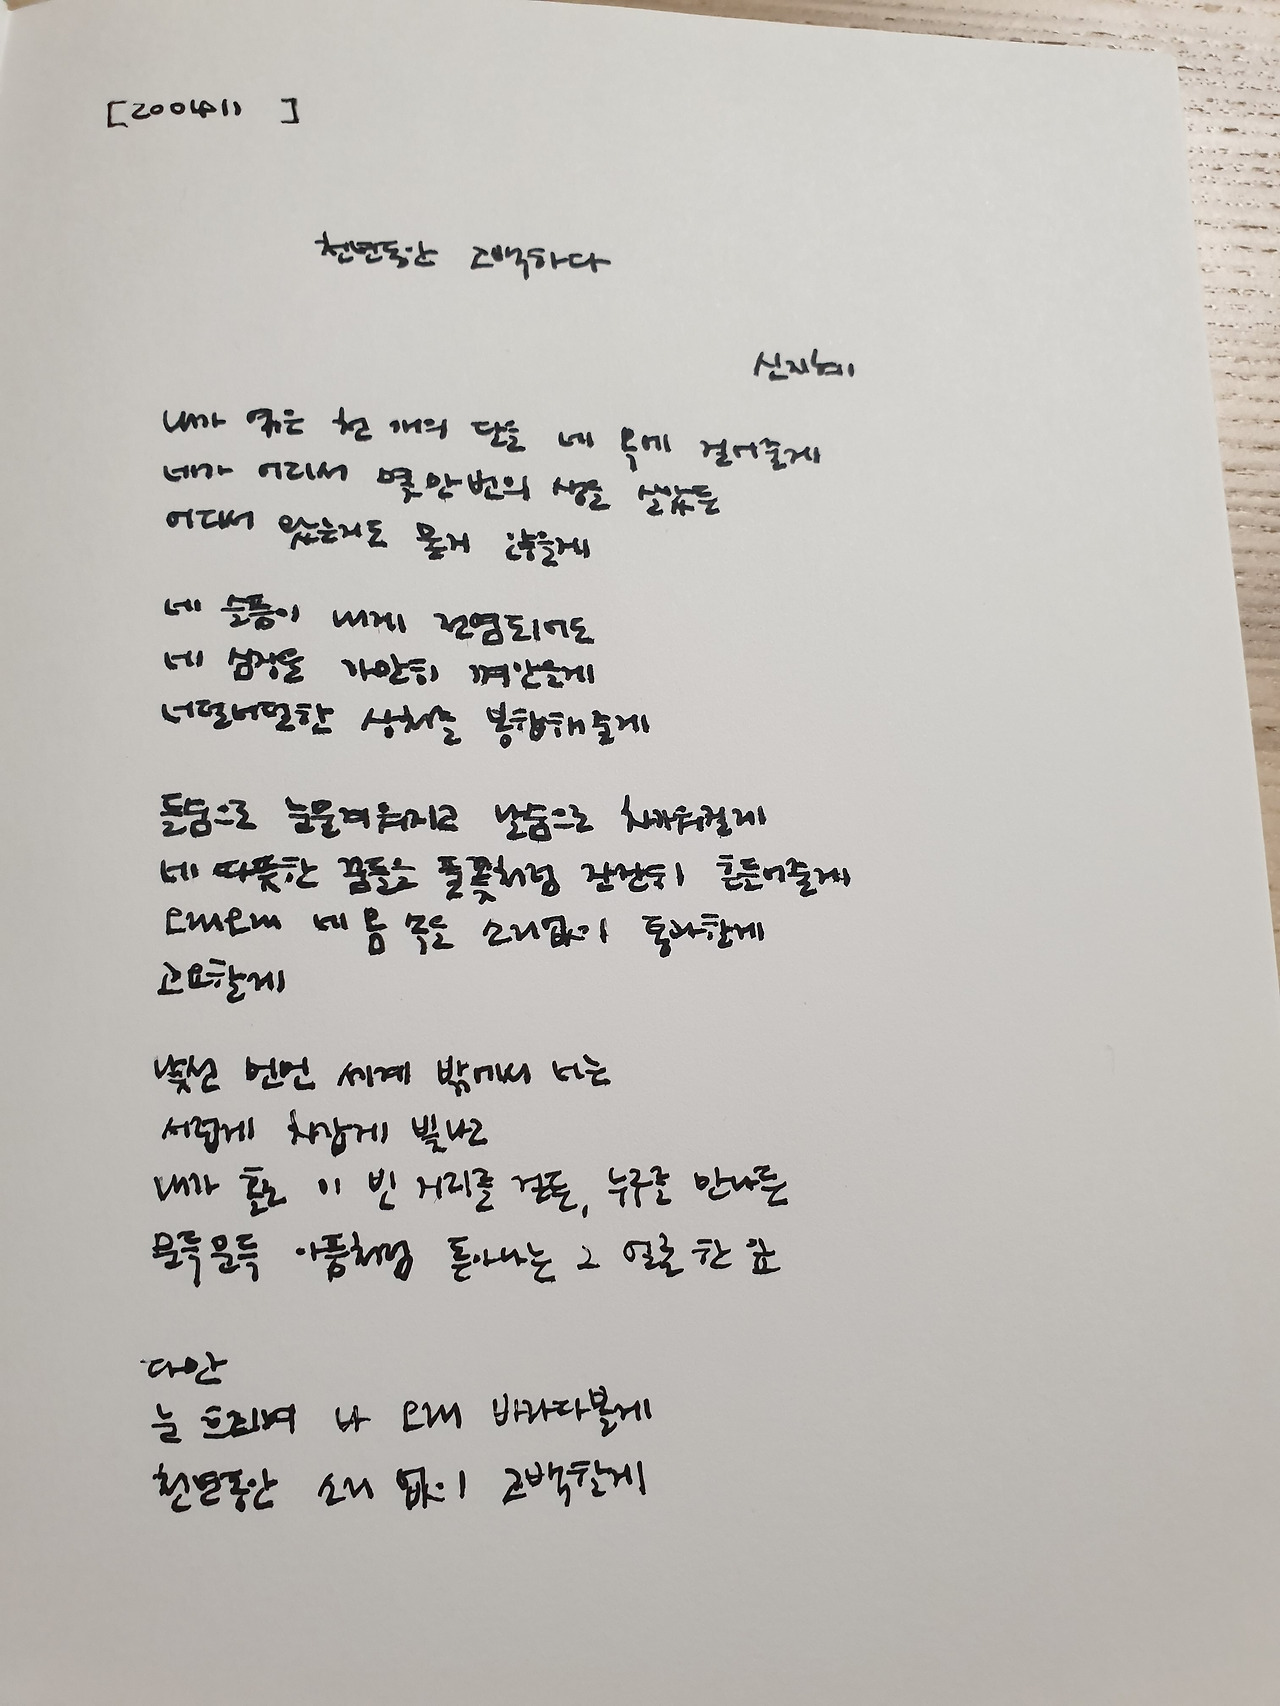 [200411 ]
천년동안 고백하다
신지혜
내가 엮은 천 개의 달을 네 목에 걸어줄게
네가 어디서 몇만번의 생을 살았든
어디서 왔는지도 묻지 않을게
네 슬픔이 내게 전염되어도
네 심장을 가만히 껴안을게
너덜너덜한 상처를 봉합해줄게
들숨으로 눈물겨워지고 날숨으로 차가워질게
네 따뜻한 꿈들을 풀꽃처럼 잔잔히 흔들어줄게
오래오래 네 몸 속을 소리없이 통과할게
고요할게
낯선 먼먼 세계 밖에서 너는
서럽게 차갑게 빛나고
내가 홀로 이 빈 거리를 걷든, 누구를 만나든
문득문득 아픔처럼 돋아나는 그 얼굴 한 잎
다만
눈 흐리며 나 오래 바라다볼게
천년동안 소리 없이 고백할게